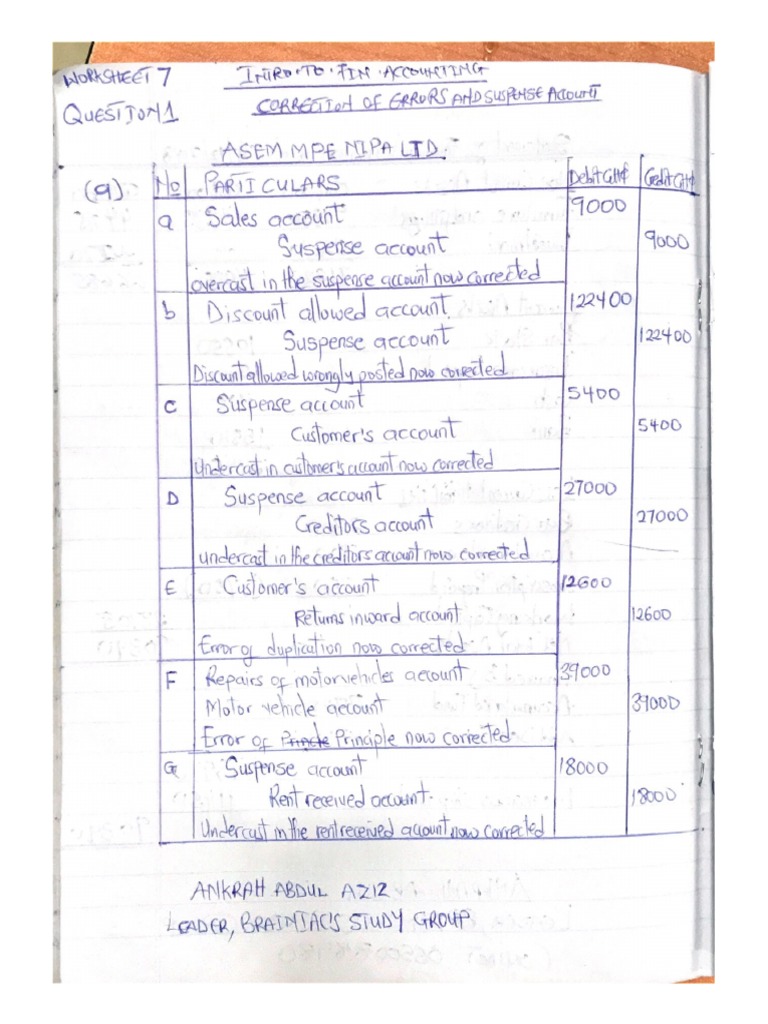 WORKSHEET 7 INTRO. TO. FIN. ACCOUNTING
QUESTION 1 CORRECTION OF ERRORS AND SUSPENSE ACCOUNT
ASEM MPE NIPA LTD.
(a) No PARTICULARS Debit GH¢ Credit GH¢
a Sales account 9000
Suspense account 9000
overcast in the suspense account now corrected
b Discount allowed account 122400
Suspense account 122400
Discount allowed wrongly posted now corrected
C Suspense account 5400
Customer's account 5400
Undercast in customer's account now corrected
D Suspense account 27000
Creditors account 27000
undercast in the creditors account now corrected
E Customer's account 12600
Returns inward account 12600
Error of duplication now corrected.
F Repairs of motor vehicles account 39000
Motor vehicle account 39000
Error of Principle now corrected.
G Suspense account 18000
Rent received account. 18000
Undercast in the rent received account now corrected
ANKRAH ABDUL AZIZ
LEADER, BRAINIAC'S STUDY GROUP